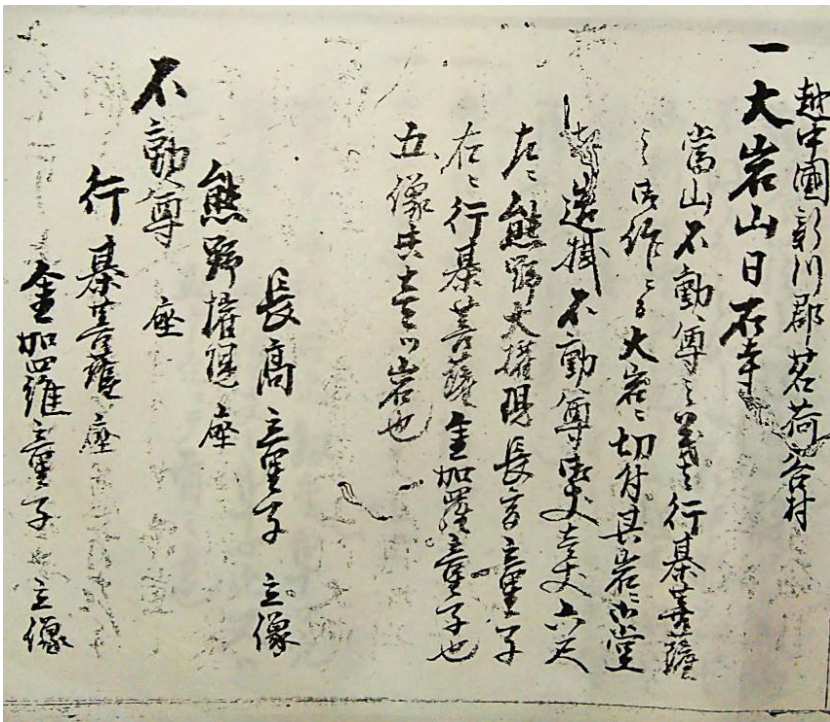 越中國新川郡茗荷谷村
一大岩山日石寺
當山不動尊之義者行基菩薩
之御作ニ而大岩ニ切付其岩ニ御堂
造掛不動尊御丈壱丈六尺
左ニ熊野大権現長高童子
右ニ行基菩薩金加羅童子也
五像共壱ツ岩也
長高童子 立像
熊野権現 座
不動尊 座
行基菩薩 座
金加羅童子 立像